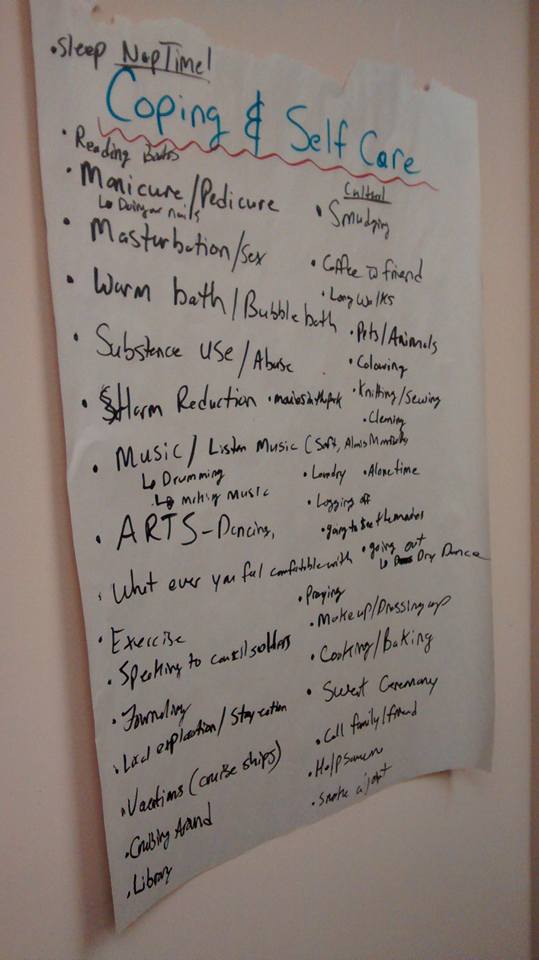 •Sleep NapTime!
Coping & Self Care
• Reading Books
• Manicure/Pedicure
↳ Doing our nails
• Masturbation/Sex
• Warm bath/Bubble bath
• Substence Use/Abuse
• Harm Reduction
• Music/Listen Music (Soft,
↳ Drumming
↳ Making Music
• ARTS-Dancing,
• What ever you feel comfortable with
• Exercise
• Speaking to
• Journaling
• Local exploration/Staycation
• Vacations (cruise ships)
• Cruising Around
• Library
Cultural
• Smudging
• Coffee w friend
• Long Walks
• Pets/Animals
• Colouring
• Knitting/Sewing
• movies in the park
• Cleaning
• Laundry
• Alone time
• Logging off
• going to see the movies
• going out
↳ Dry Dance
• Praying
• Makeup/Dressing up
• Cooking/Baking
• Sweat Ceremony
• Call family/friend
• Help someone
• Smoke a joint